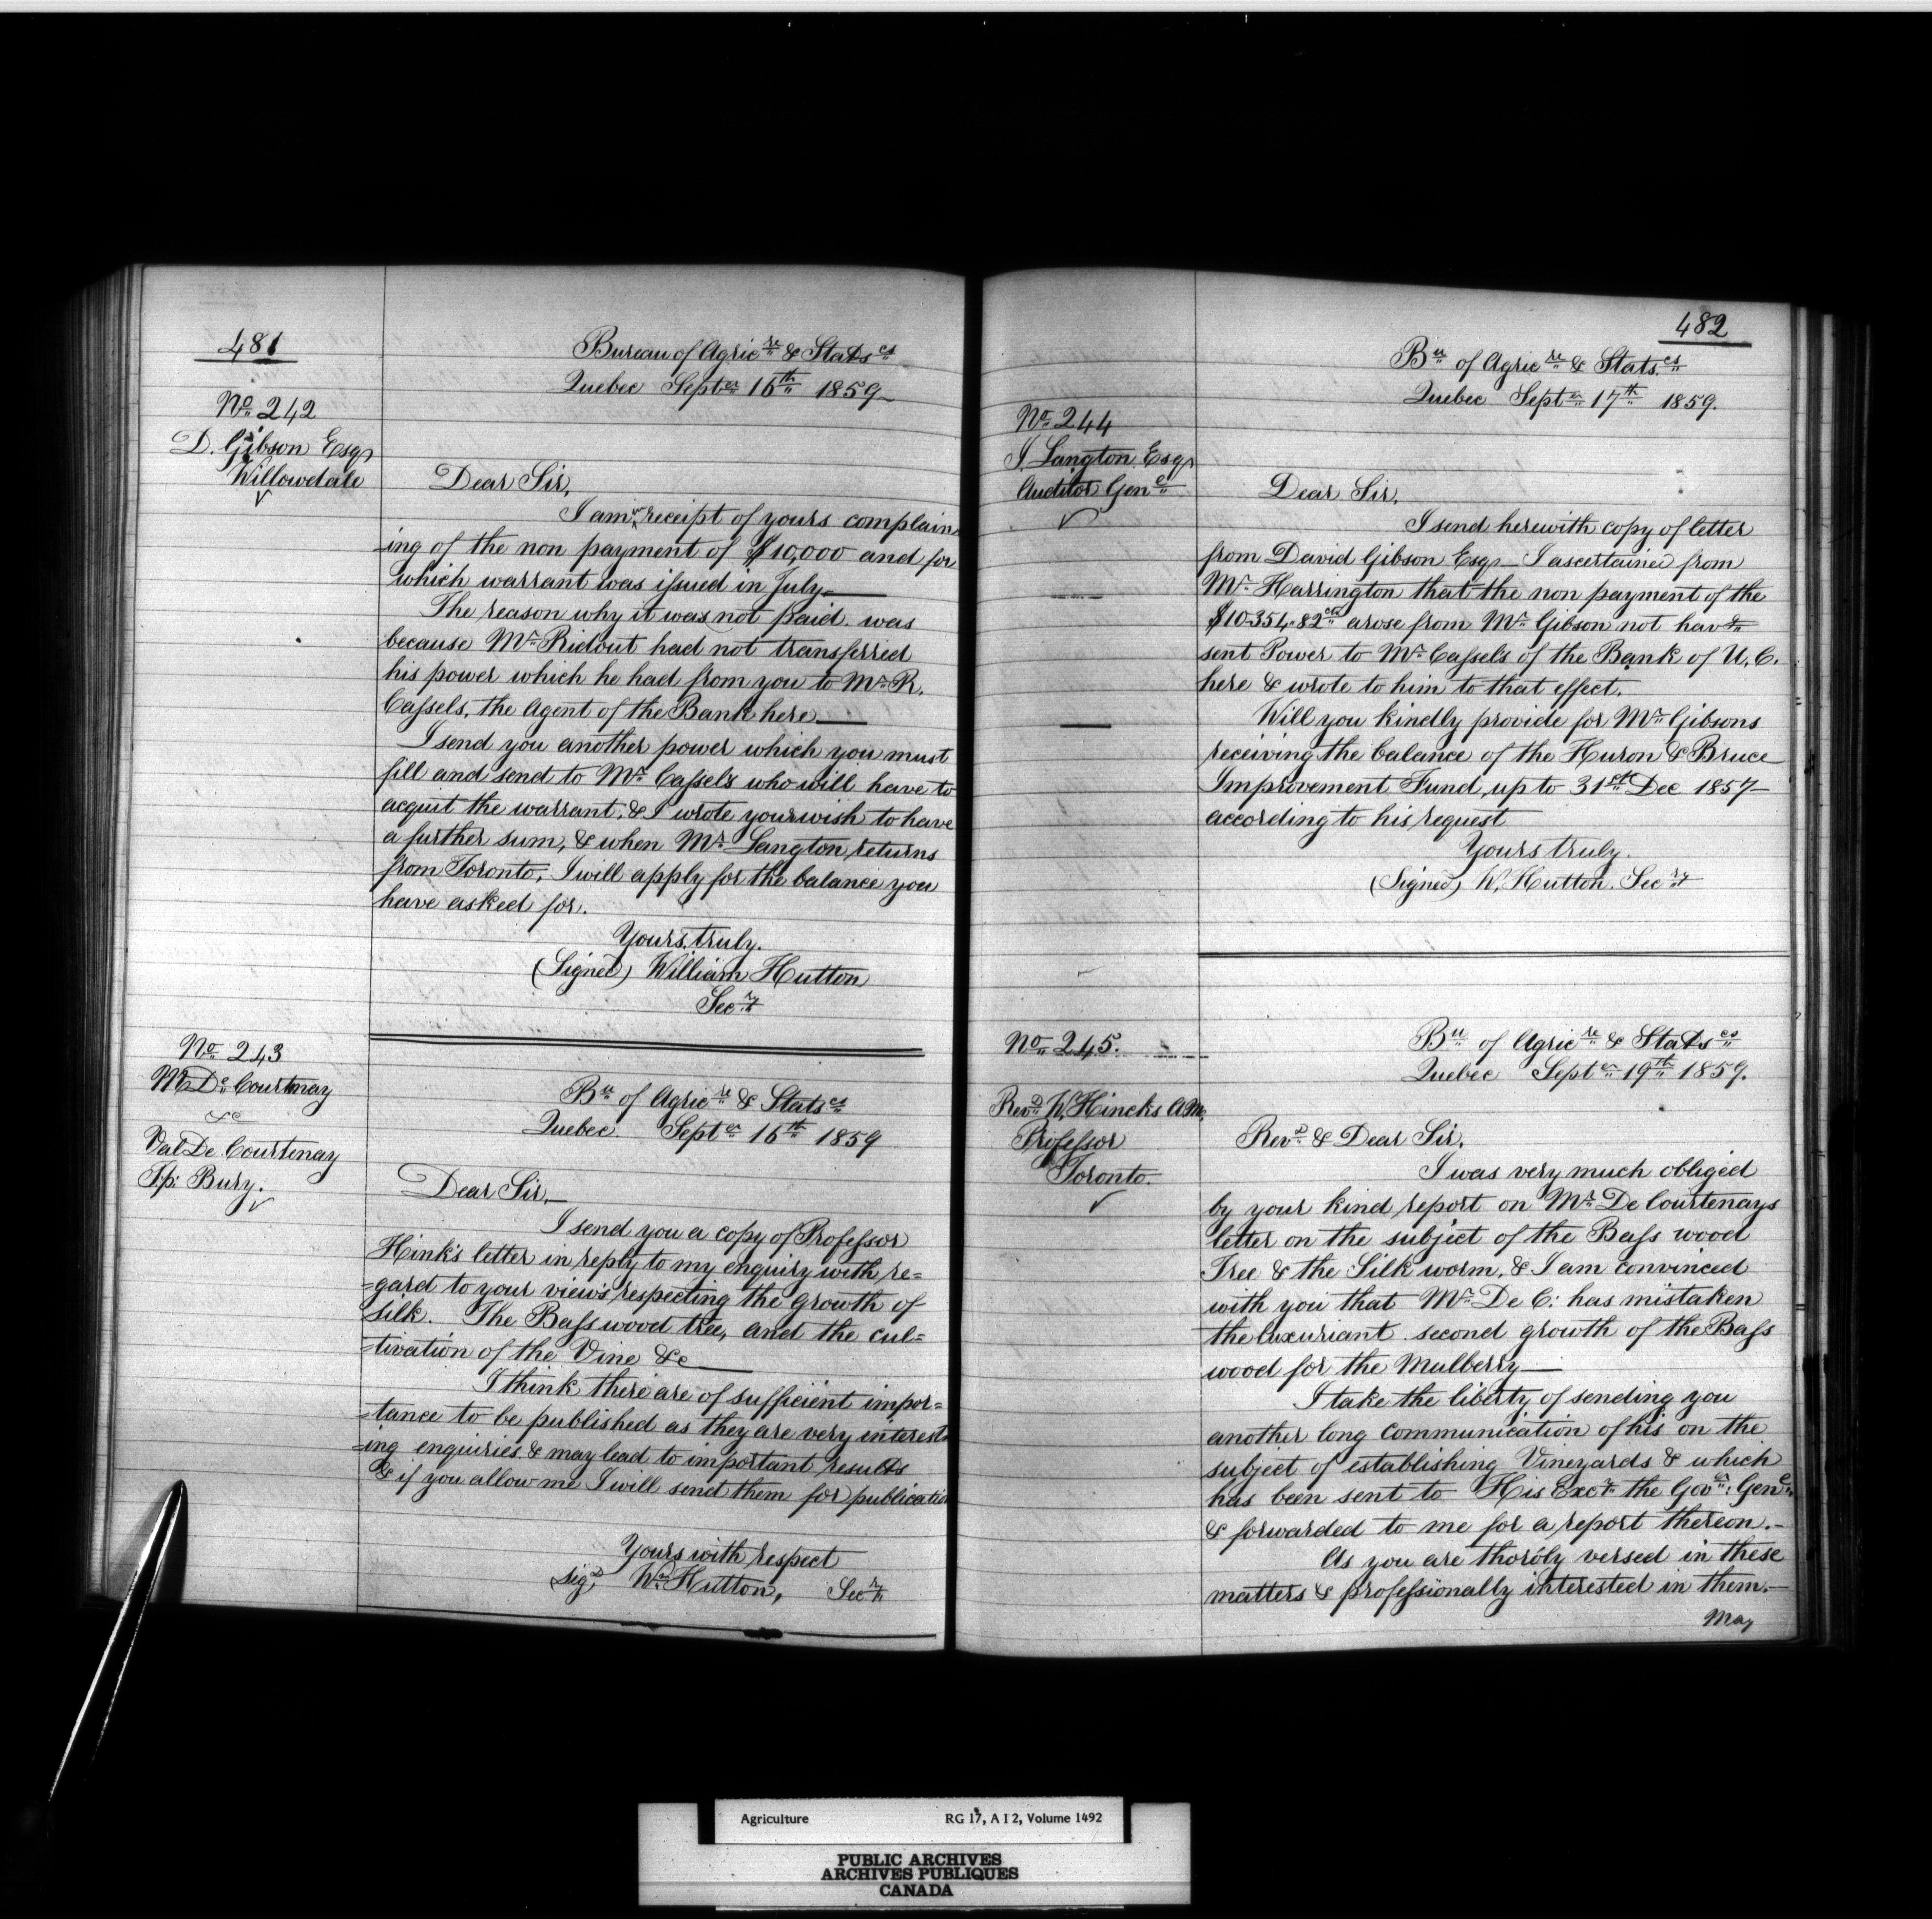 481
No 242
D. Gibson Esqr
Willowdale
Bureau of Agricre & Statscs
Quebec Septer 16th 1859
Dear Sir,
I am in receipt of yours complain
ing of the non payment of $10,000 and for
which warrant was issued in July
The reason why it was not paid was
because Mr Ridout had not transferred
his power which he had from you to Mr R.
Cassels, the Agent of the Bank here
I send you another power which you must
fill and send to Mr Cassels who will have to
acquit the warrant, & I wrote your wish to have
a further sum, & when Mr Langton returns
from Toronto, I will apply for the balance you
have asked for.
Yours truly.
(Signed) William Hutton
Secry
No 243
M De Courtnay
&c
Val De Courtenay
Tp: Bury.
Bu of Agricre & Statscs
Quebec. Septer 16th 1859
Dear Sir,
I send you a copy of Professor
Hink's letter in reply to my enquiry with re=
=gard to your views respecting the growth of
Silk. The Basswood tree, and the cul=
=tivation of the Vine &c
I think there are of sufficient impor=
=tance to be published as they are very interest
=ing enquiries & may lead to important results
& if you allow me I will send them for publication
Yours with respect
Sigd Wm Hutton, Secry
482
No 244
J. Langton Esqr
Auditor Genl
Bu of Agricre & Stats.cs
Quebec Septer 17th 1859.
Dear Sir,
I send herewith copy of letter
from David Gibson Esqr I ascertained from
Mr Harrington that the non payment of the
$10354.82cts arose from Mr Gibson not havg
sent Power to Mr Cassels of the Bank of U.C.
here & wrote to him to that effect.
Will you kindly provide for Mr Gibsons
receiving the balance of the Huron & Bruce
Improvement Fund, up to 31st Dec 1857
according to his request
Yours truly.
(Signed) W. Hutton. Secry
No 245.
Revd W. Hincks AM,
Professor
Toronto.
Bu of Agricre & Statscs
Quebec Septer 19th 1859.
Revd & Dear Sir,
I was very much obliged
by your kind report on Mr De Courtenays
letter on the subject of the Bass wood
Tree & the Silk worm, & I am convinced
with you that Mr De C: has mistaken
the luxuriant second growth of the Bass
wood for the Mulberry
I take the liberty of sending you
another long communication of his on the
subject of establishing Vineyards & which
has been sent to His Excy the Govr: Genl
& forwarded to me for a report thereon.-
As you are thoroly versed in these
matters & professionally interested in them.-
May
Agriculture RG 17, A I 2, Volume 1492
PUBLIC ARCHIVES
ARCHIVES PUBLIQUES
CANADA